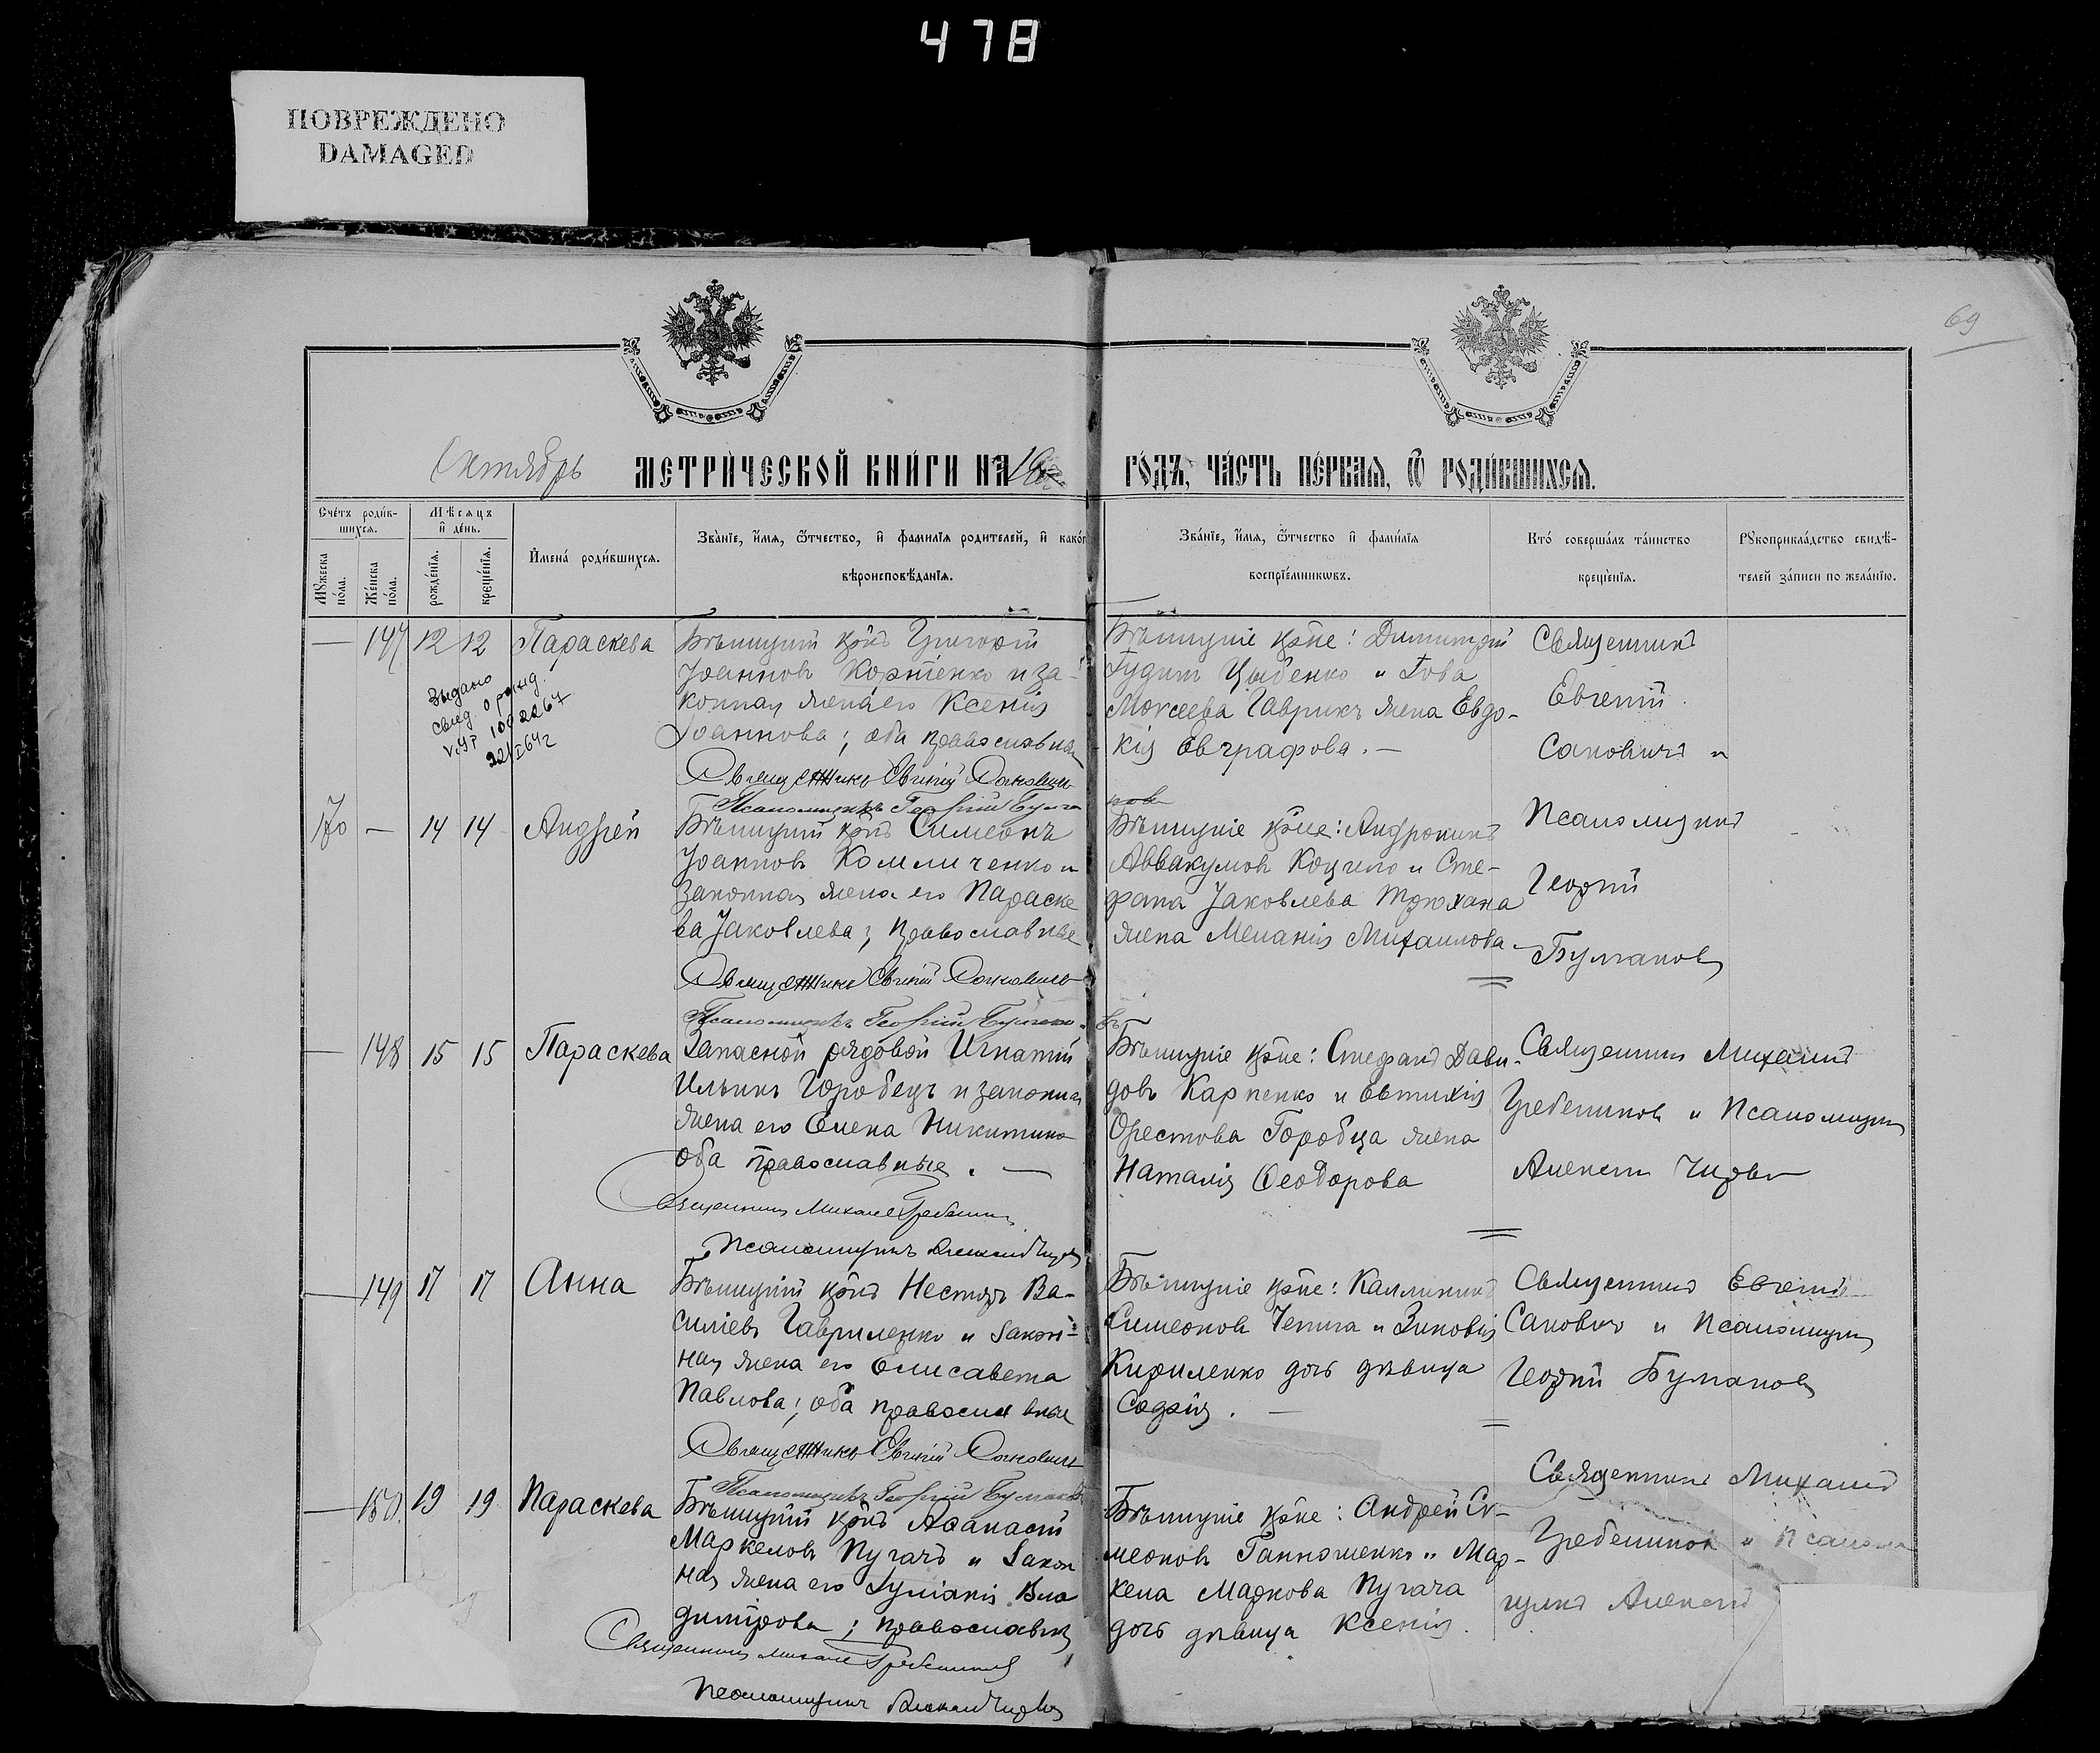 478
ПОВРЕЖДЕНО
DAMAGED
69
Октябрь МЕТРИ́ЧЕСКОЙ КНИ́ГИ НА
ГО́ДЪ, ЧА́СТЬ ПЕ́РВАЯ, Ѿ РОДИ́ВШИХСЯ.
Сче́тъ роди́в-
шихся.
Мѣсяцъ
и҆ де́нь.
Мꙋжеска по́ла.
Же́нска по́ла.
рожде́нїя.
креще́нїя.
И҆мена̀ роди́вшихся.
Зва́нїе, и҆́мя, ѻ҆́тчество, и҆ фамилїя родителей, и҆ како́г
вѣроисповѣ́данїя.
Зва́нїе, и҆́мя, ѻ҆́тчество и҆ фами́лїя
воспрїе́мникѡвъ.
Кто̀ соверша́лъ та́инство
креще́нїя.
Рꙋкоприкла́дство свидѣ́-
телей за́писи по жела́нїю.
— 147 12 12 Параскева
Григорій
Іоанновъ Корніенко и за-
конная жена его Ксенія
Іоаннова; оба православные
Священникъ Евгеній Санович
Псаломщикъ Георгій Булга
Выдано
свид. о рожд.
100 2267
Димитрій
Гудимъ Цыбенко и Іова
Моисеева Гаврикъ жена Евдо-
кія Евграфова. —
Священникъ
Евгеній
Сановичъ и
Псаломщикъ
Георгій
Булгаковъ
170 — 14 14 Андрей
Симеонъ
Іоанновъ Комличенко и
законная жена его Параске
ва Іаковлева; православные
Священникъ Евгеній Сановичъ
Псаломщикъ Георгій Булгако-
Андроникъ
Аввакумовъ и Сте-
фана Іаковлева Трюхана
жена Меланія Михаилова.
въ
— 148 15 15 Параскева
Запасной рядовой Игнатій
Ильинъ Городецъ и законная
жена его Елена Никитина
оба православные. —
Священникъ Михаилъ Гребенник
Псаломщикъ Алексей Чирва
Стефанъ Дави-
довъ Карпенко и Евтихія
Орестова Городца жена
Наталія Ѳеодорова
Священникъ Михаилъ
Гребенниковъ и Псаломщикъ
Алексей Чирва
— 149 17 17 Анна
Несторъ Ва-
силіевъ Гавриленко и закон-
ная жена его Елисавета
Павлова; оба православные
Священникъ Евгеній Сановичъ
Псаломщикъ Георгій Булгаковъ
Каллиникъ
Симеоновъ Чепига и Зиновія
Кириленко дочь дѣвица
Софія. —
Священникъ Евгеній
Сановичъ и Псаломщикъ
Георгій Булгаковъ
— 150. 19 19 Параскева
Аѳанасій
Маркеловъ Пугачъ и закон
ная жена его Іуліанія Вла
димірова; православные
Священникъ Михаилъ Гребенников
Псаломщикъ Алексей Чирва
Андрей Си-
меоновъ и Мар-
кела Маркова Пугача
дочь дѣвица Ксенія.
Священникъ Михаилъ
Гребенниковъ и Псалом
щикъ Алексей